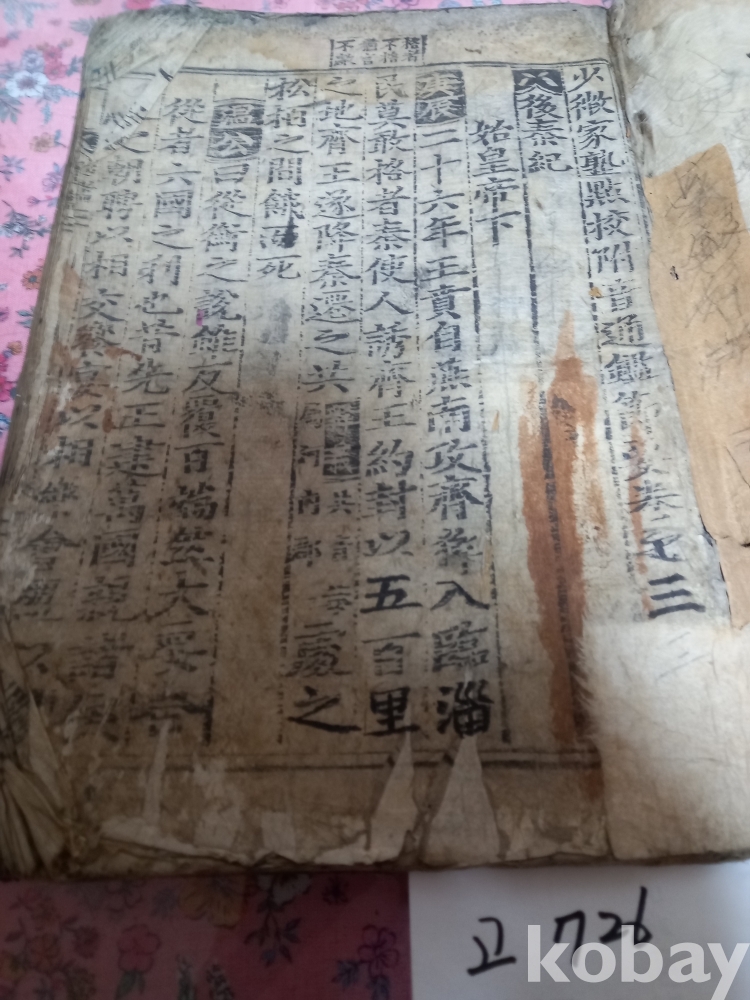 少微家塾點校附音通鑑節要卷之三
後秦紀
始皇帝下
庚辰二十六年王賁自燕南攻齊猝入臨淄
民莫敢格者秦使人誘齊王約封以五百里
之地齊王遂降秦遷之共 處之
松柏之間餓而死
溫公曰從衡之說雖反覆百端然大要
從者六國之利也昔先王建萬國親諸侯
朝聘以相交饗宴以相樂會盟以
고 726
kobay